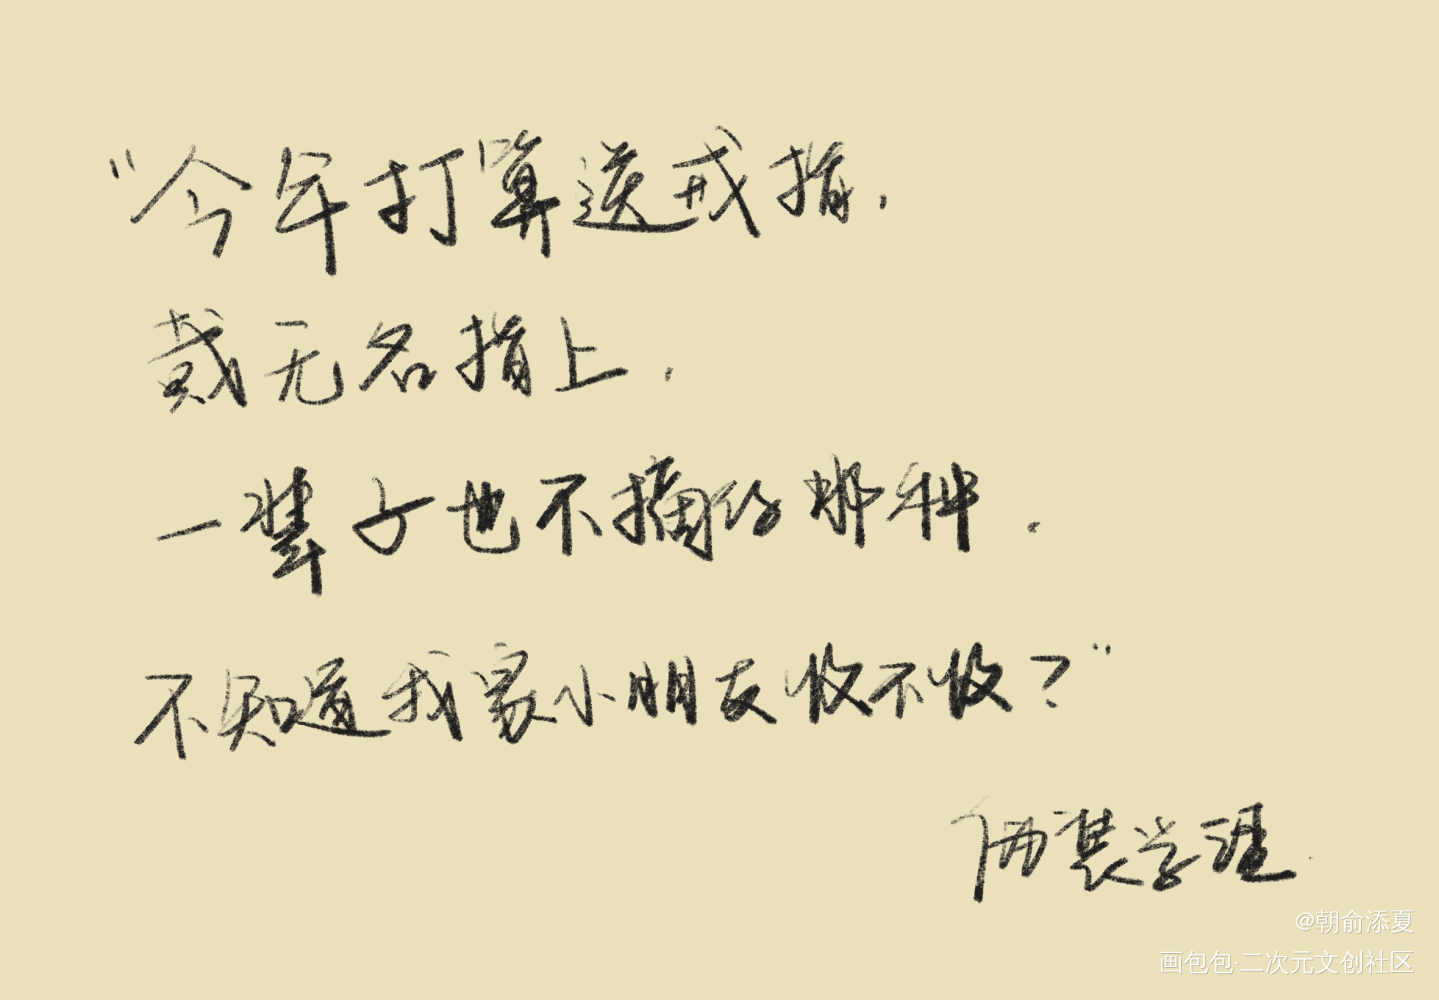 “今年打算送戒指.
戴无名指上.
一辈子也不摘的那种.
不知道我家小朋友收不收？”
伪装学渣.
@朝俞添夏
画包包·二次元文创社区